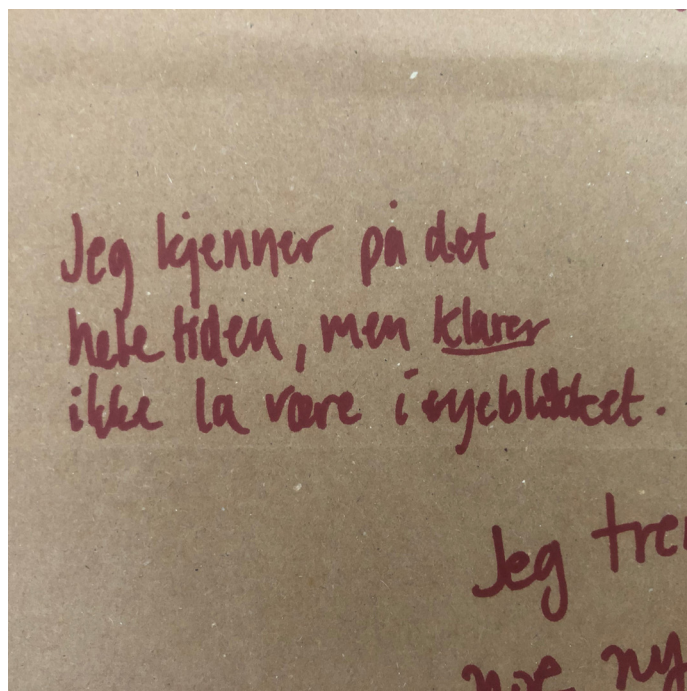 Jeg kjenner på det
hele tiden, men klarer
ikke la være i øyeblikket.
Jeg
noe